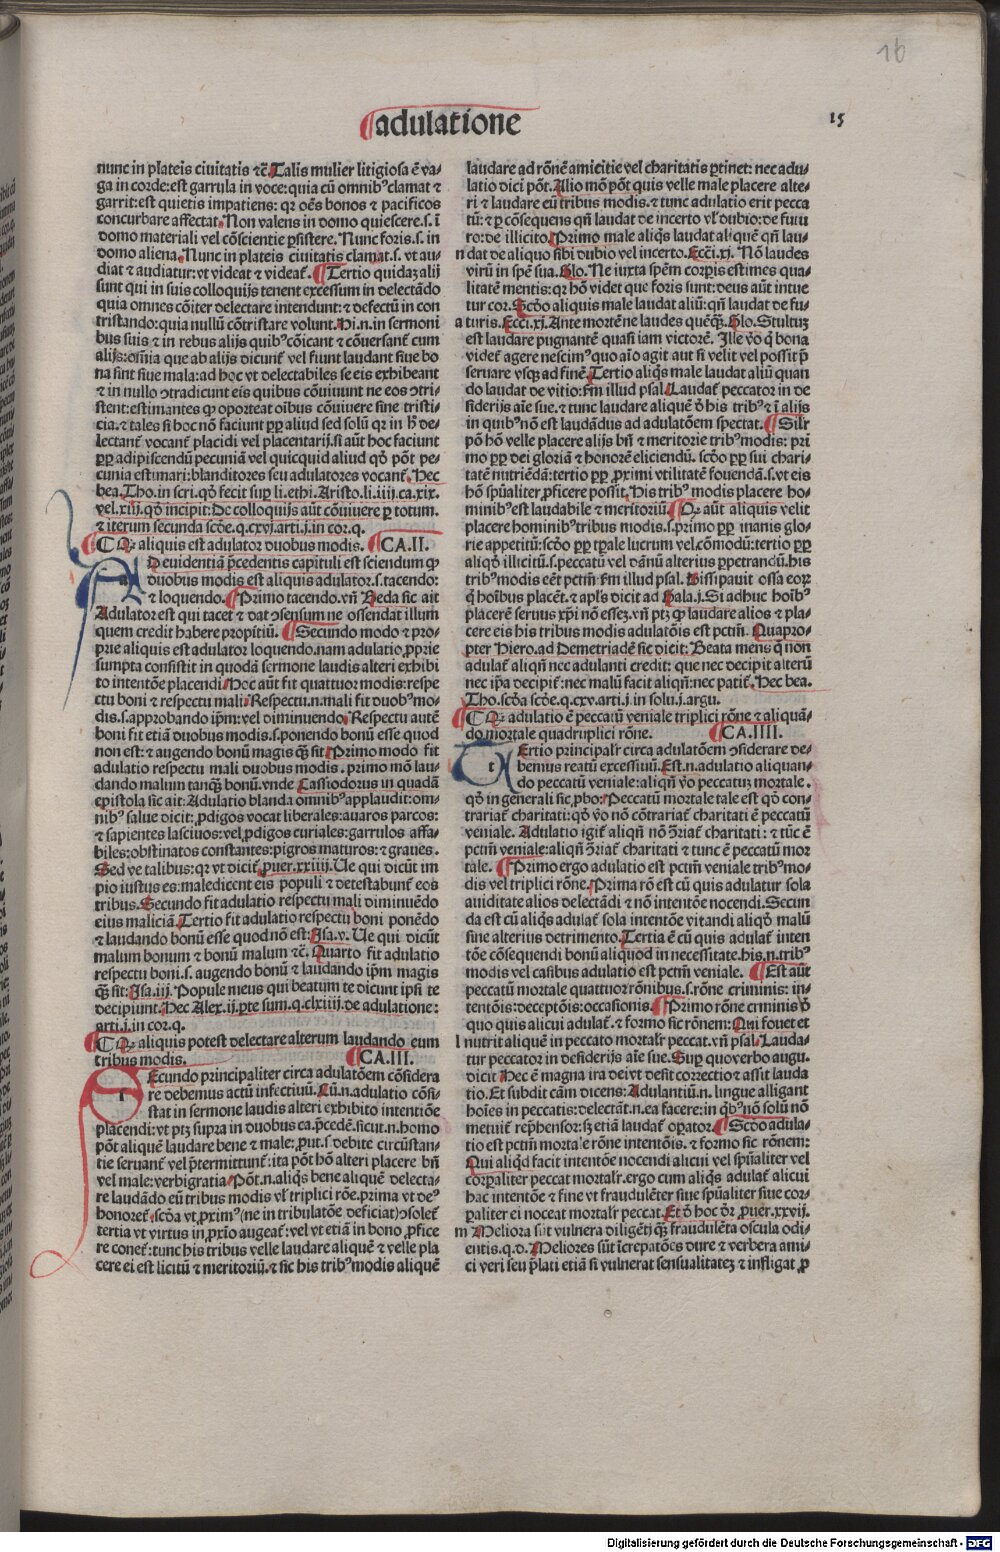 16
adulatione
15
nunc in plateis ciuitatis ⁊c̄. Talis mulier litigiosa ē va-
ga in corde: est garrula in voce: quia cū omnibꝰ clamat ⁊
garrit: est quietis impatiens: qꝛ oēs bonos ⁊ pacificos
concurbare affectat. Non valens in domo quiescere. s. ī
domo materiali vel cōscientie ꝑsistere. Nunc foris. s. in
domo aliena. Nunc in plateis ciuitatis clamat. s. vt au-
diat ⁊ audiatur: vt videat ⁊ videat̄. Tertio quidaꝫ alij
sunt qui in suis colloquijs tenent excessum in delectādo
quia omnes cōiter delectare intendunt: ⁊ defectū in con
tristando: quia nullū cōtristare volunt. Hi. n. in sermoni
bus suis ⁊ in rebus alijs quibꝰ cōicant ⁊ cōuersant̄ cum
alijs: oīa que ab alijs dicunt̄ vel fiunt laudant siue bo
na sint siue mala: ad hoc vt delectabiles se eis exhibeant
⁊ in nullo ↄtradicunt eis quibus cōuiuunt ne eos ↄtri-
stent: estimantes ꝙ oporteat oībus cōuiuere sine tristi-
cia. ⁊ tales si hoc nō faciunt ꝓpꝉ aliud sed solū qꝛ in hꝰ de-
lectant̄ vocant̄ placidi vel placentarij. si aūt hoc faciunt
ꝓpꝉ adipiscendū pecuniā vel quicquid aliud qd̄ pōt pe-
cunia estimari: blanditores seu adulatores vocant̄. Hec
bea. Tho. in scri. qd̄ fecit sup li. ethi. Aristo. li. iiij. ca. xix.
vel. xiij. qd̄ incipit: De colloquijs aūt cōuiuere ꝑ totum.
⁊ iterum secunda scd̄e. q. cxvi. arti. j. in cor. q.
¶ Qꝙ aliquis est adulator duobus modis. ¶ CA. II.
AD euidentiā p̄cedentis capituli est sciendum ꝙ
duobus modis est aliquis adulator. s. tacendo:
⁊ loquendo. Primo tacendo. vn̄ Beda sic ait
Adulator est qui tacet ⁊ dat ↄsensum ne offendat illum
quem credit habere propitiū. Secundo modo ⁊ pro-
prie aliquis est adulator loquendo. nam adulatio, ꝓprie
sumpta consistit in quodā sermone laudis alteri exhibi
to intentōe placendi. Hoc aūt fit quattuor modis: respe
ctu boni ⁊ respectu mali. Respectu. n. mali fit duobꝰ mo-
dis. s. approbando ip̄m: vel diminuendo. Respectu autē
boni fit etiā duobus modis. s. ponendo bonū esse quod
non est: ⁊ augendo bonū magis qꝫ sit. Primo modo fit
adulatio respectu mali duobus modis. primo mō lau-
dando malum tanqꝫ bonū. vnde Cassiodorus in quadā
epistola sic ait: Adulatio blanda omnibꝰ applaudit: om-
nibꝰ salue dicit: ꝓdigos vocat liberales: auaros parcos:
⁊ sapientes lasciuos: vel, ꝓdigos curiales: garrulos affa-
biles: obstinatos constantes: pigros maturos: ⁊ graues.
Sed ve talibus: qꝛ vt dicit̄, puer. xxiiij. Ue qui dicūt im
pio iustus es: maledicent eis populi ⁊ detestabunt̄ eos
tribus. Secundo fit adulatio respectu mali diminuēdo
eius maliciā. Tertio fit adulatio respectu boni ponēdo
⁊ laudando bonū esse quod nō est: Isa. v. Ue qui dicūt
malum bonum ⁊ bonū malum ⁊c̄. Quarto fit adulatio
respectu boni. s. augendo bonū ⁊ laudando ip̄m magis
qꝫ sit: Isa. iij. Popule meus qui beatum te dicunt ipsi te
decipiunt. Hec Alex. ij. ꝑte sum. q. clxiiij. de adulatione:
arti. j. in cor. q.
¶ Qꝙ aliquis potest delectare alterum laudando eum
tribus modis. ¶ CA. III.
SEcundo principaliter circa adulatōem cōsidera
re debemus actū infectiuū. Cū. n. adulatio cōsi-
stat in sermone laudis alteri exhibito intentiōe
placendi: vt ptꝫ supra in duobus ca. p̄cedē. sicut. n. homo
pōt aliquē laudare bene ⁊ male: ꝓut. s. debite circūstan-
tie seruant̄ vel p̄termittunt̄: ita pōt hō alteri placere bn̄
vel male: verbigratia. Pōt. n. aliqs bene aliquē delecta-
re laudādo eū tribus modis vꝉ triplici rōe. prima vt deꝰ
honoret̄. scd̄a vt, ꝓximꝰ (ne in tribulatōe deficiat) ↄsolet̄
tertia vt virtus in, ꝓxīo augeat̄: vel vt etiā in bono, ꝓfice
re conet̄: tunc his tribus velle laudare aliquē ⁊ velle pla
cere ei est licitū ⁊ meritoriū. ⁊ sic his tribꝰ modis aliquē
laudare ad rōnē amicitie vel charitatis ꝑtinet: nec adu-
latio dici pōt. Alio mō pōt quis velle male placere alte-
ri ⁊ laudare eū tribus modis. ⁊ tunc adulatio erit pecca
tū: ⁊ ꝑ cōsequens qn̄ laudat de incerto vꝉ dubio: de futu
ro: de illicito. Primo male aliqs laudat aliquē qn̄ lau-
n dat de aliquo sibi dubio vel incerto. Ecci. xj. Nō laudes
virū in spē sua. Glo. Ne iuxta spēm corꝑis estimes qua-
litatē mentis: qꝛ hō videt que foris sunt: deus aūt intue
tur cor. Scd̄o aliquis male laudat aliū: qn̄ laudat de fu-
a turis. Ecci. xj. Ante mortē ne laudes quēqꝫ. Glo. Stultuꝫ
est laudare pugnantē quasi iam victorē. Ille vō q bona
videt̄ agere nescimꝰ quo aīo agit aut si velit vel possit ꝑ
seruare vsqꝫ ad finē. Tertio aliqs male laudat aliū quan
do laudat de vitio: ẜm illud psal. Laudat̄ peccator in de
siderijs aīe sue. ⁊ tunc laudare aliquē ꝺ his tribꝰ ⁊ ī alijs
in quibꝰ nō est laudādus ad adulatōem spectat. ¶ Silꝉ
pō hō velle placere alijs bn̄ ⁊ meritorie tribꝰ modis: pri
mo ꝓpꝉ dei gloriā ⁊ honorē eliciendū. scd̄o ꝓpꝉ sui chari-
tatē nutriēdā: tertio ꝓpꝉ, ꝓximi vtilitatē fouendā. s. vt eis
hō spūaliter, ꝓficere possit. His tribꝰ modis placere ho-
minibꝰ est laudabile ⁊ meritoriū. ¶ Qꝙ aūt aliquis velit
placere hominibꝰ tribus modis. s. primo ꝓpꝉ inanis glo-
rie appetitū: scd̄o ꝓpꝉ tꝑale lucrum vel, cōmodū: tertio ꝓpꝉ
aliqd̄ illicitū. s. peccatū vel dānū alterius ꝑpetrandū. his
tribꝰ modis eēt pctm̄ ẜm illud psal. Dissipauit ossa eoꝝ
q hoībus placēt. ⁊ apl̄s dicit ad Gala. j. Si adhuc hoībꝰ
placerē seruus xp̄i nō esseꝫ. vn̄ ptꝫ ꝙ laudare alios ⁊ pla-
cere eis his tribus modis adulatōis est pctm̄. Quapro-
pter Hiero. ad Demetriadē sic dicit: Beata mens q non
adulat̄ aliqn̄ nec adulanti credit: que nec decipit alterū
nec ip̄a decipit̄: nec malū facit aliqn̄: nec patit̄. Hec bea.
Tho. scd̄a scd̄e. q. cxv. arti. j. in solu. j. argu.
¶ Qꝙ adulatio ē peccatū veniale triplici rōne ⁊ aliquā-
do mortale quadruplici rōne. ¶ CA. IIII.
TErtio principalꝉ circa adulatōem ↄsiderare de-
bemus reatū excessiuū. Est. n. adulatio aliquan-
do peccatū veniale: aliqn̄ vō peccatuꝫ mortale.
qd̄ in generali sic, ꝓbo: Peccatū mortale tale est qd̄ con-
trariat̄ charitati: qd̄ vō nō cōtrariat̄ charitati ē peccatū
veniale. Adulatio igit̄ aliqn̄ nō ↄ̄riat̄ charitati: ⁊ tūc ē
pctm̄ veniale: aliqn̄ ↄ̄riat̄ charitati ⁊ tunc ē peccatū mor
tale. ¶ Primo ergo adulatio est pctm̄ veniale tribꝰ mo-
dis vel triplici rōne. Prima rō est cū quis adulatur sola
auiditate alios delectādi ⁊ nō intentōe nocendi. Secun
da est cū aliqs adulat̄ sola intentōe vitandi aliqd̄ malū
sine alterius detrimento. Tertia ē cū quis adulat̄ inten
tōe cōsequendi bonū aliquod in necessitate. his. n. tribꝰ
modis vel casibus adulatio est pctm̄ veniale. ¶ Est aūt
peccatū mortale quattuor rōnibus. s. rōne criminis: in-
tentōis: deceptōis: occasionis. ¶ Primo rōne crminis ꝺ
quo quis alicui adulat̄. ⁊ formo sic rōnem: Qui fouet et
l nutrit aliquē in peccato mortalꝉ peccat. vn̄ psal. Lauda-
tur peccator in desiderijs aīe sue. Suꝑ quo verbo augu.
dicit Hec ē magna ira dei vt desit correctio ⁊ assit lauda
tio. Et subdit cām dicens: Adulantiū. n. lingue alligant
hoīes in peccatis: delectāt. n. ea facere: in qbꝰ nō solū nō
metuit̄ rep̄hensor: sꝫ etiā laudat̄ oꝑator. ¶ Scd̄o adula-
tio est pctm̄ mortale rōne intentōis. ⁊ formo sic rōnem:
Qui aliqd̄ facit intentōe nocendi alicui vel spūaliter vel
corꝑaliter peccat mortalꝉ. ergo cum aliqs adulat̄ alicui
hac intentōe ⁊ fine vt fraudulēter siue spūaliter siue cor-
ꝑaliter ei noceat mortalꝉ peccat. Et ꝺ hoc ꝺꝛ, ꝓuer. xxvij.
m Meliora sūt vulnera diligēti qꝫ fraudulēta oscula odi-
entis. q. d. Meliores sūt īcrepatōes dure ⁊ verbera ami-
ci veri seu p̄lati etiā si vulnerat sensualitateꝫ ⁊ infligat ꝓ
Digitalisierung gefördert durch die Deutsche Forschungsgemeinschaft - DFG